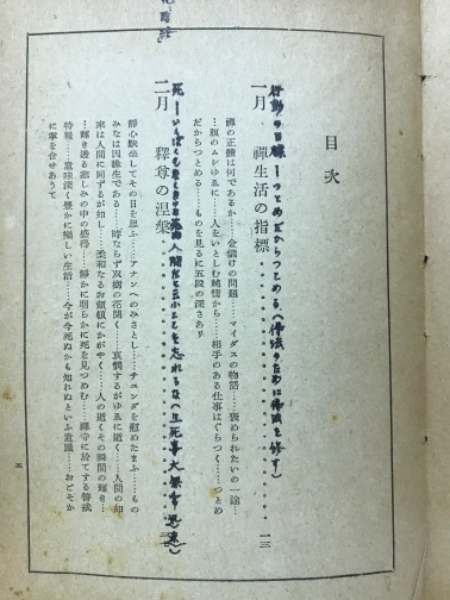 目次
行動の目標ーつとめだからつとめる(佛法のために佛法を修す)
一月 禪生活の指標 一三
禪の正體は何であるか……金儲けの問題……マイダスの物語……褒められたいの一途…
…腹のムシゆゑに……人をいとしむ純情から……相手のある仕事はぐらつく……つとめ
だからつとめる……ものを見るに五段の深さあり
人間だと云ふことを忘れるな(生死事大無常迅速)
二月 釋尊の涅槃
靜心默坐してその日を思ふ……アナンへのみさとし……チユンダを慰めたまふ……もの
みなは因緣生である……時ならず双樹の花開く……哀愍するがゆゑに逝く……人間の如
來は人間に同ずるが如し……柔和なるお顏頓にかがやく……人の逝くその瞬間の輝き…
…輝き透る悲しみの中の感得……靜かに明らかに死を見つめむ……禪寺に於てする警戒
特報……意味深く豐かに樂しい生活……今が今死ぬかも知れぬといふ意識……おごそか
に掌を合せあうて
五